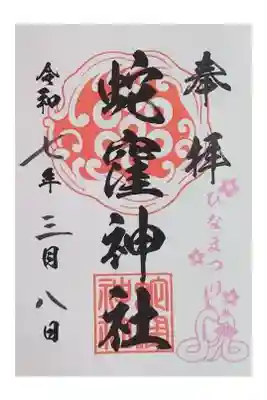 奉拝
ひなまつり
蛇窪神社
令和七年三月八日